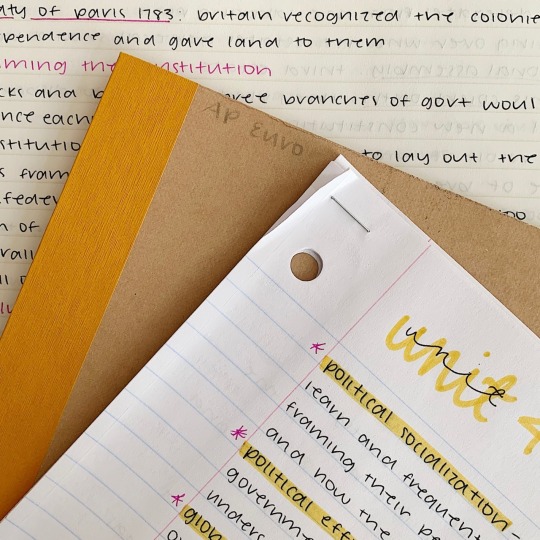 aty of paris 1783: britain recognized the colonie
pendence and gave land to them
aming the constitution
cks and b three branches of govt woul
nce each
stitutio to lay out the
s fram
feder
n of
rall
AP Euro
unit 4
* political socialization-
learn and frequent
framing their pe
and how the
* political eff
governme
unders
* glob